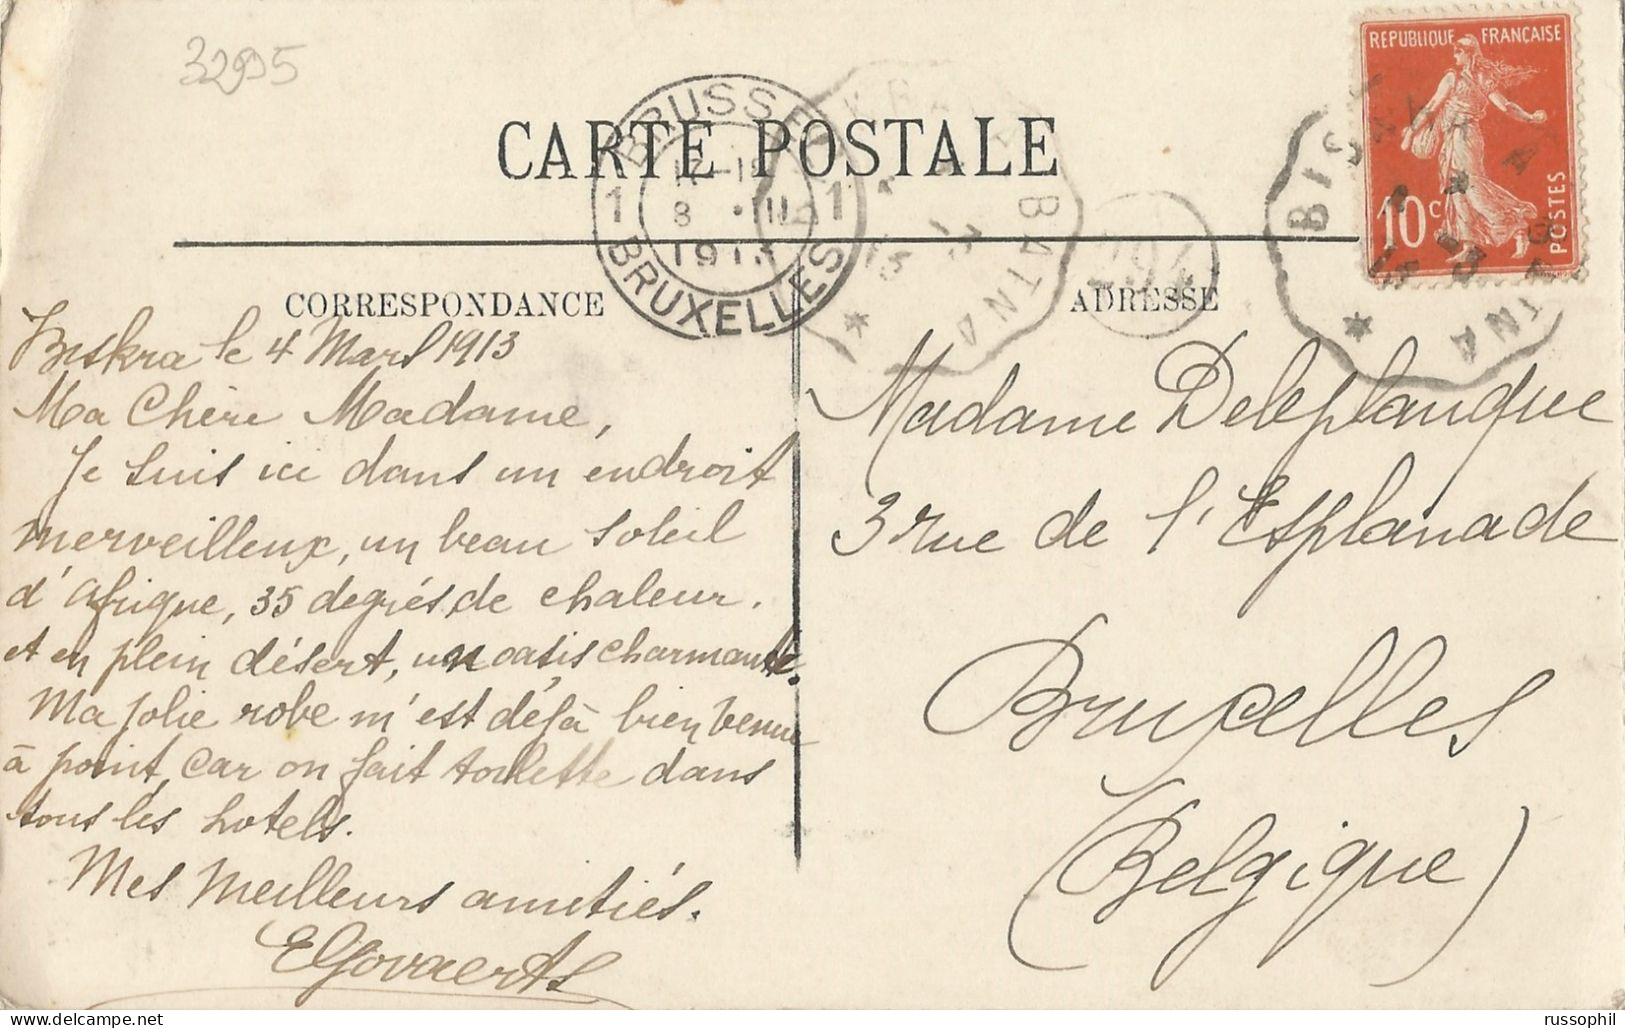 3295
REPUBLIQUE FRANÇAISE
10c
POSTES
BRUSSEL
1 1
8 III
1913
BRUXELLES
BISKRA
BATNA
CARTE POSTALE
CORRESPONDANCE
Biskra le 4 Mars 1913
Ma Chère Madame,
Je suis ici dans un endroit
merveilleux, un beau soleil
d'Afrique, 35 degrés de chaleur.
et en plein désert, un oasis charmante.
Ma jolie robe m'est déjà bien venue
à point, car on fait toilette dans
tous les hotels.
Mes meilleurs amitiés.
EGovaerts
ADRESSE
Madame Deleplanque
3 rue de l'Esplanade
Bruxelles
(Belgique)
russophil